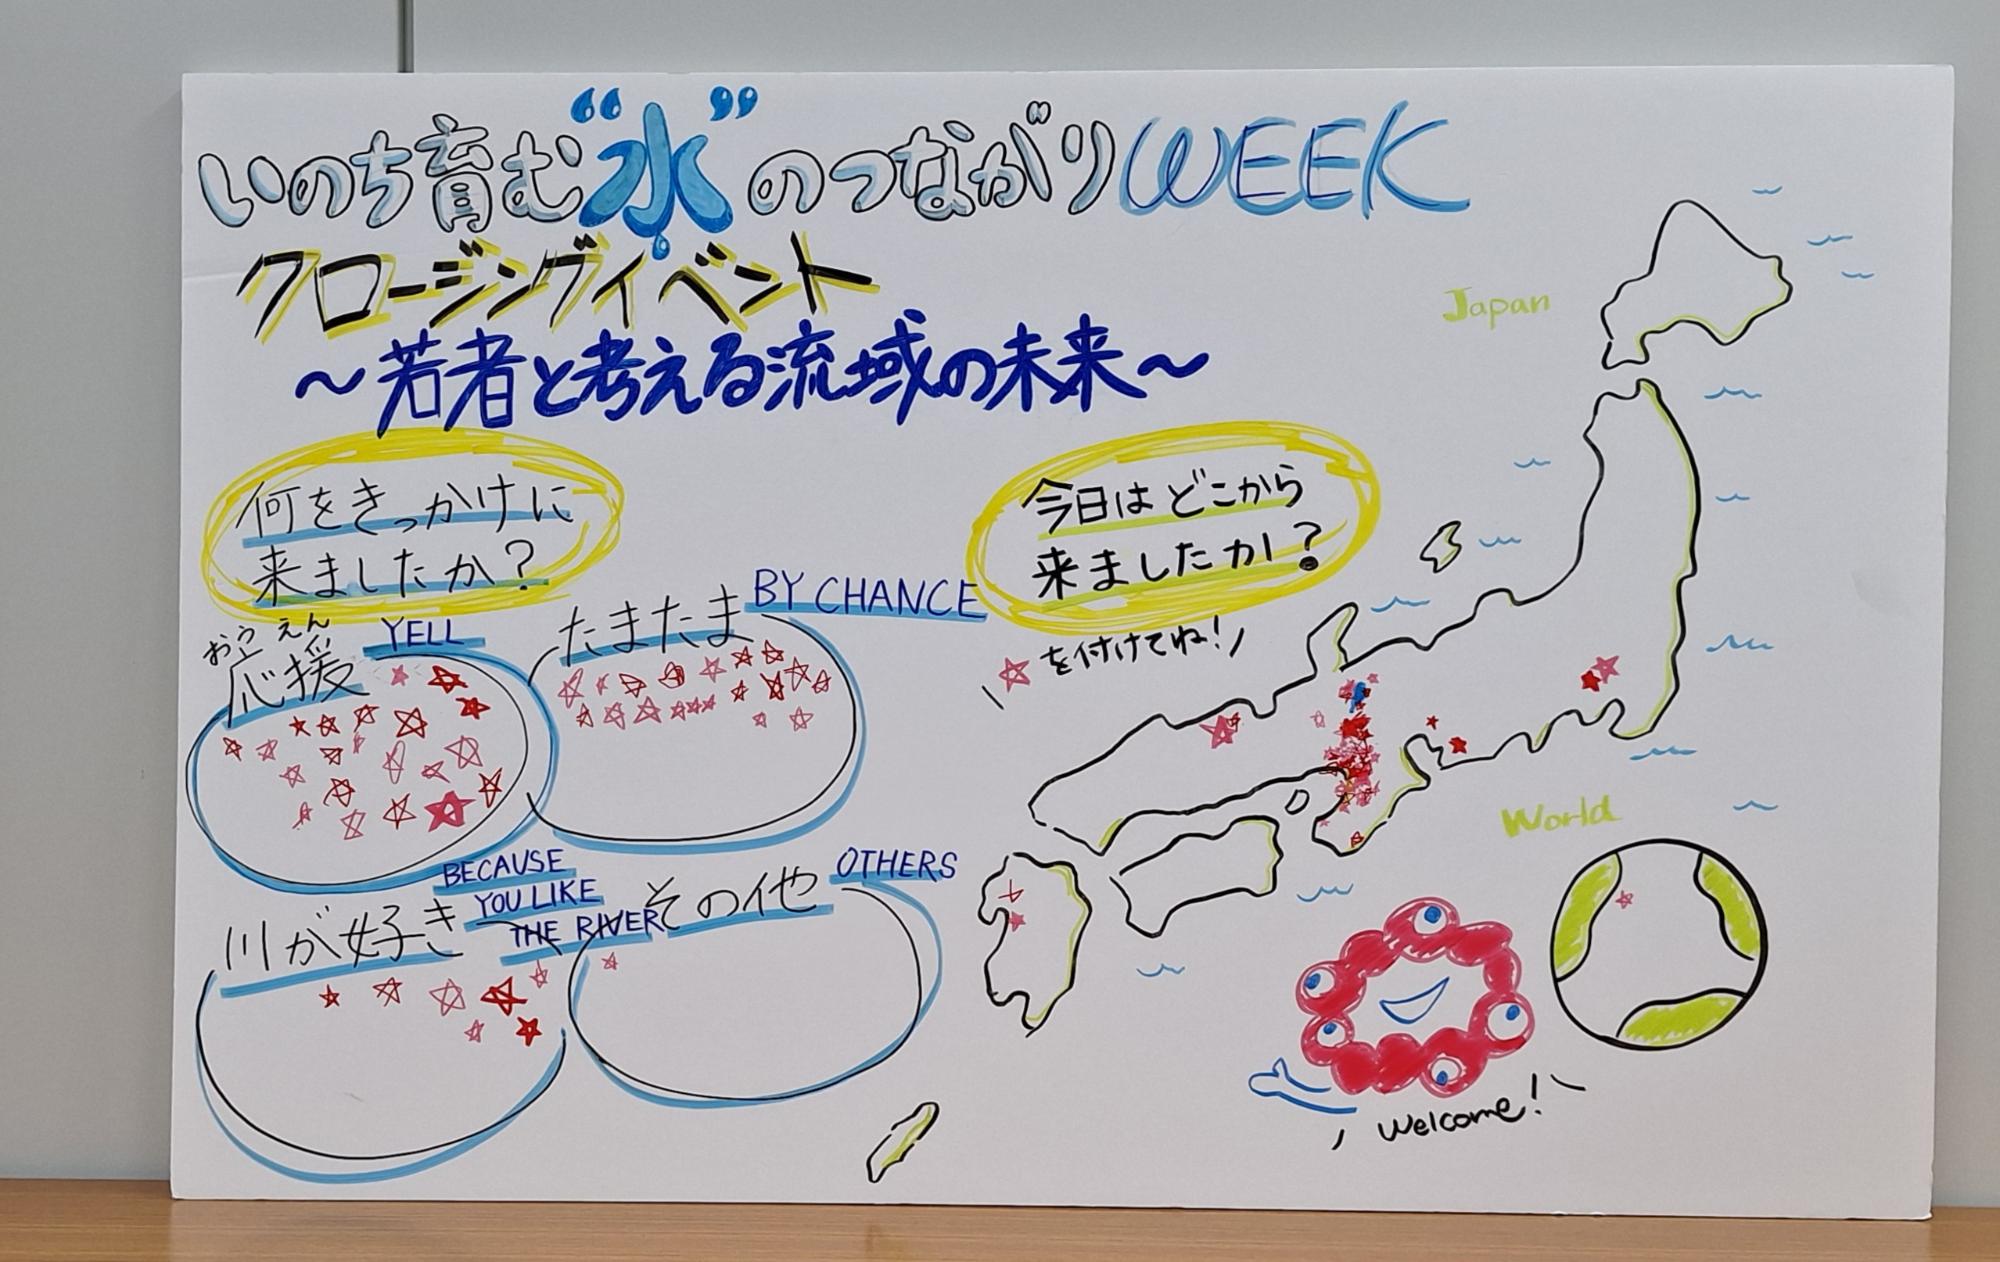 いのち育む“水”のつながりWEEK
クロージングイベント
～若者と考える流域の未来～
何をきっかけに
来ましたか？
今日はどこから
来ましたか？
☆を付けてね！
おうえん
応援 YELL
たまたま BY CHANCE
川が好き BECAUSE
YOU LIKE
THE RIVER
その他 OTHERS
Japan
World
Welcome!